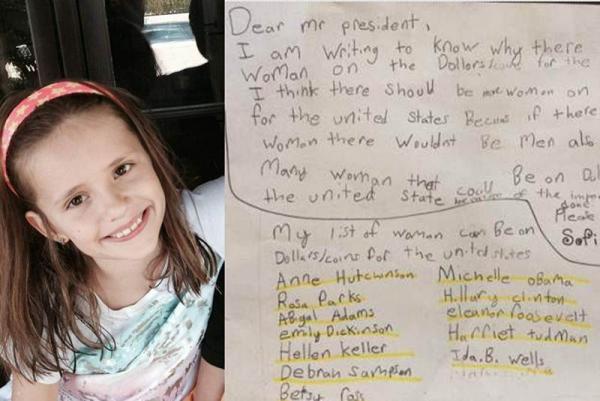 Dear mr president,
I am writing to know why there
woman on the Dollars/coins for the
I think there should be more woman on
for the united States Becuas if there
woman there wouldnt Be Men also
Many woman that could Be on Dol
the united state of the impor
done
Please
Sofi
My list of woman can Be on
Dollars/coins for the united states
Anne Hutchinson
Rosa Parks
Abigal Adams
emily Dickinson
Hellen keller
Debrah Sampson
Betsy ross
Michelle obama
Hillary clinton
eleanor roosevelt
Harriet tudman
Ida.B. wells